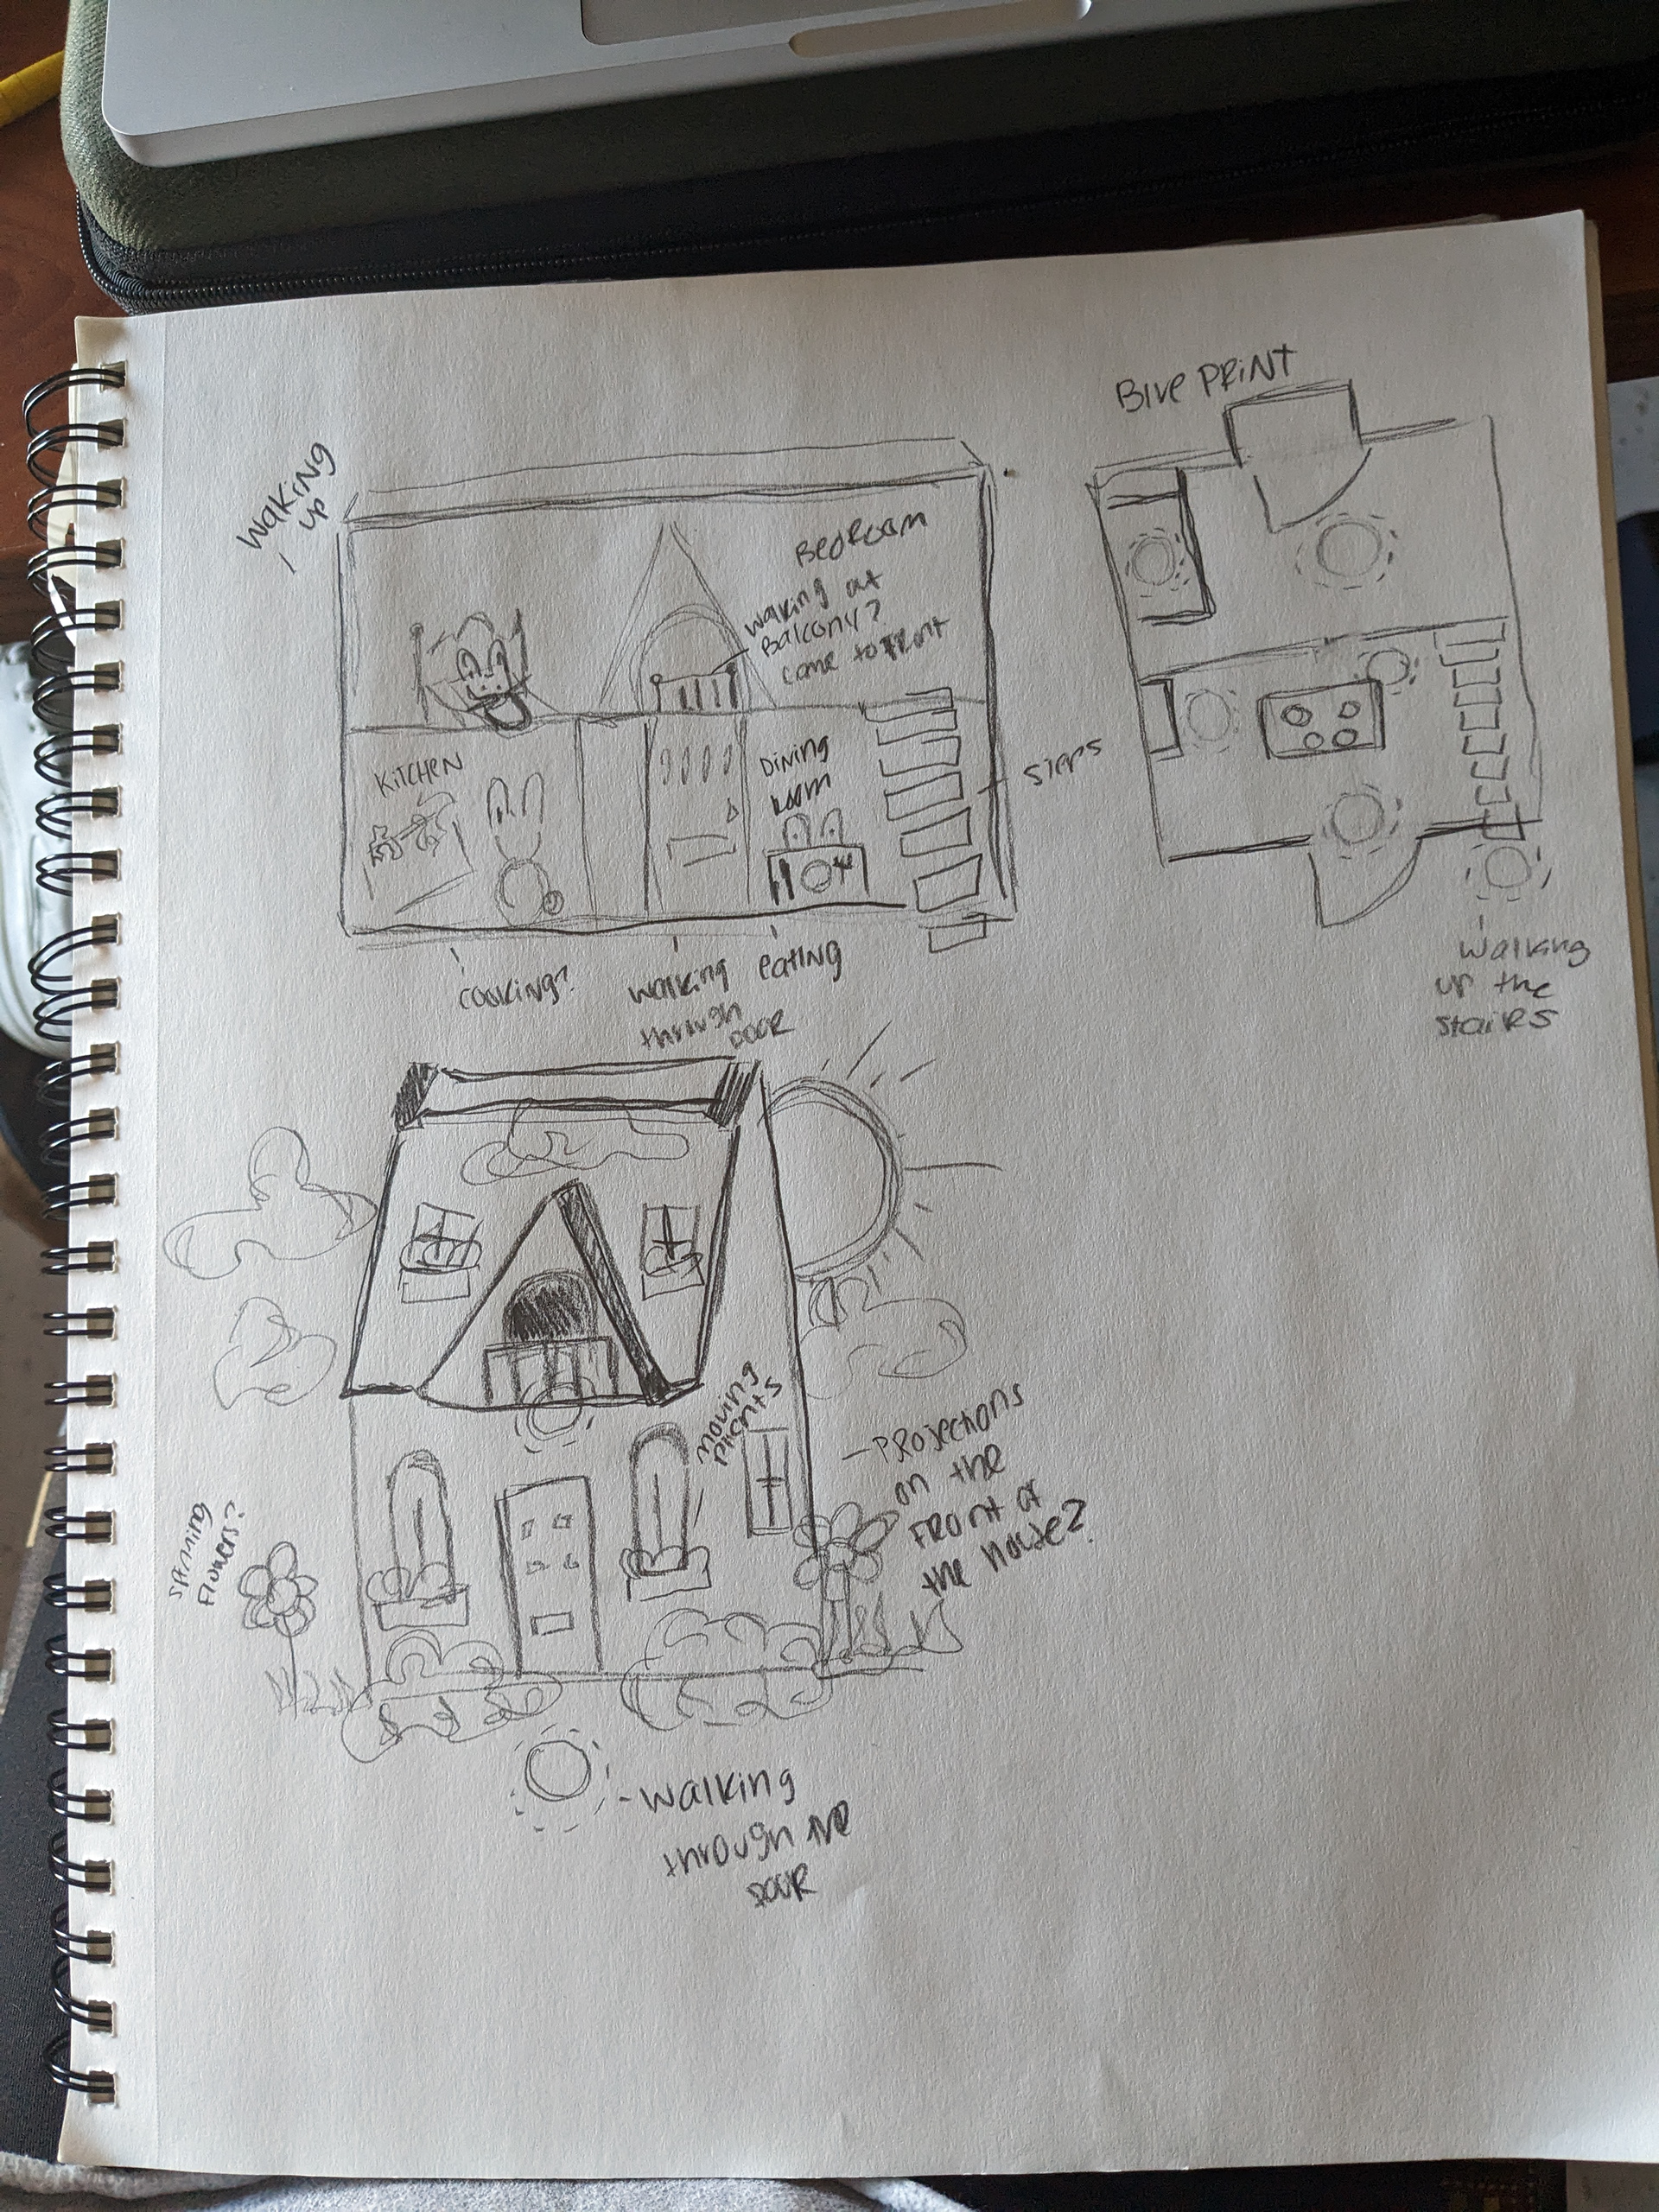 BLUE PRINT
WAKING
UP
BEDROOM
WALKING OUT
BALCONY?
COME TO FRONT
KITCHEN
DINING
ROOM
STEPS
COOKING?
WALKING
THROUGH
DOOR
EATING
WALKING
UP THE
STAIRS
MOVING
PLANTS
SPINNING
FLOWERS?
- PROJECTIONS
ON THE
FRONT OF
THE HOUSE?
- WALKING
THROUGH THE
DOOR